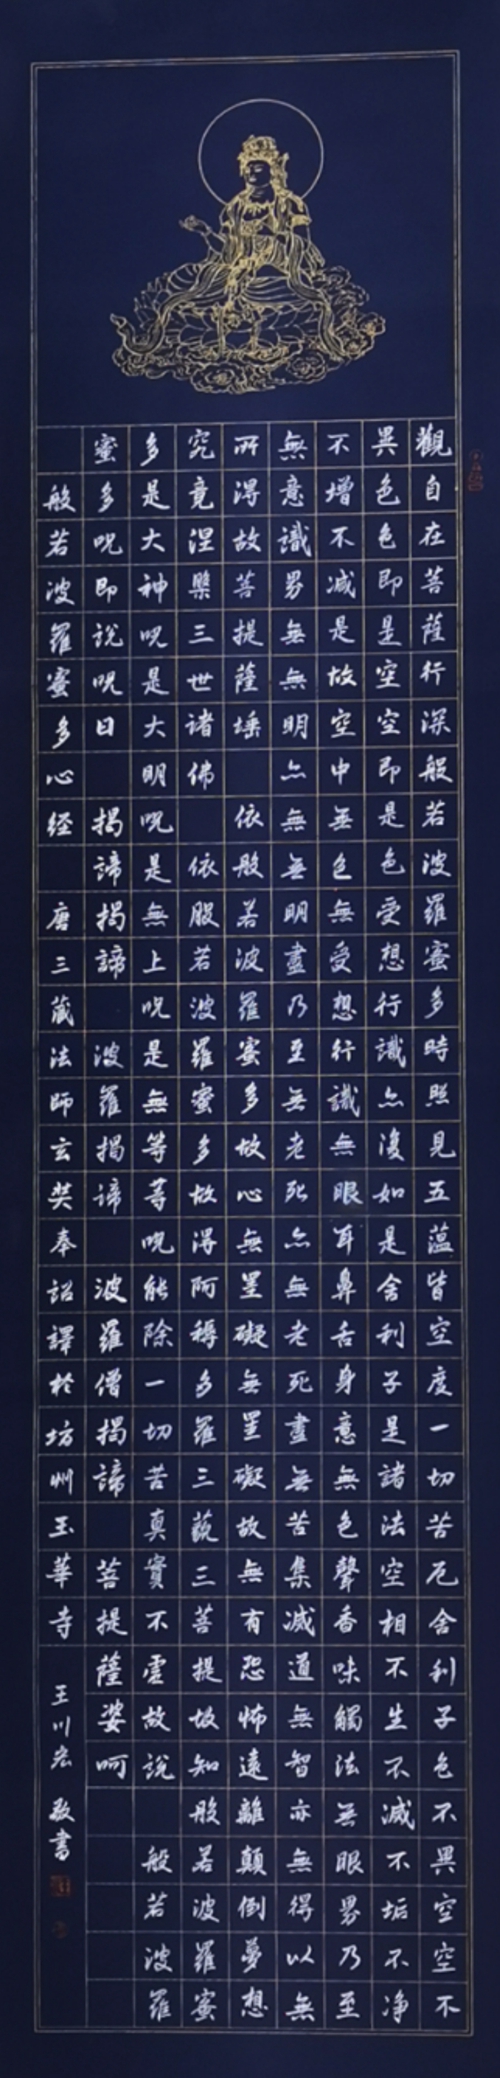 觀自在菩薩行深般若波羅蜜多時照見五蘊皆空度一切苦厄舍利子色不異空空不
異色色即是空空即是色受想行識亦復如是舍利子是諸法空相不生不滅不垢不净
不增不减是故空中無色無受想行識無眼耳鼻舌身意無色聲香味觸法無眼界乃至
無意識界無無明亦無無明盡乃至無老死亦無老死盡無苦集滅道無智亦無得以無
所得故菩提薩埵 依般若波羅蜜多故心無罣礙無罣礙故無有恐怖遠離顛倒夢想
究竟涅槃三世諸佛 依般若波羅蜜多故得阿耨多羅三藐三菩提故知般若波羅蜜
多是大神呪是大明呪是無上呪是無等等呪能除一切苦真實不虛故說 般若波羅
蜜多呪即說呪曰 揭諦揭諦 波羅揭諦 波羅僧揭諦 菩提薩婆呵
般若波羅蜜多心経 唐三藏法師玄奘奉詔譯於坊州玉華寺 王川宏敬書